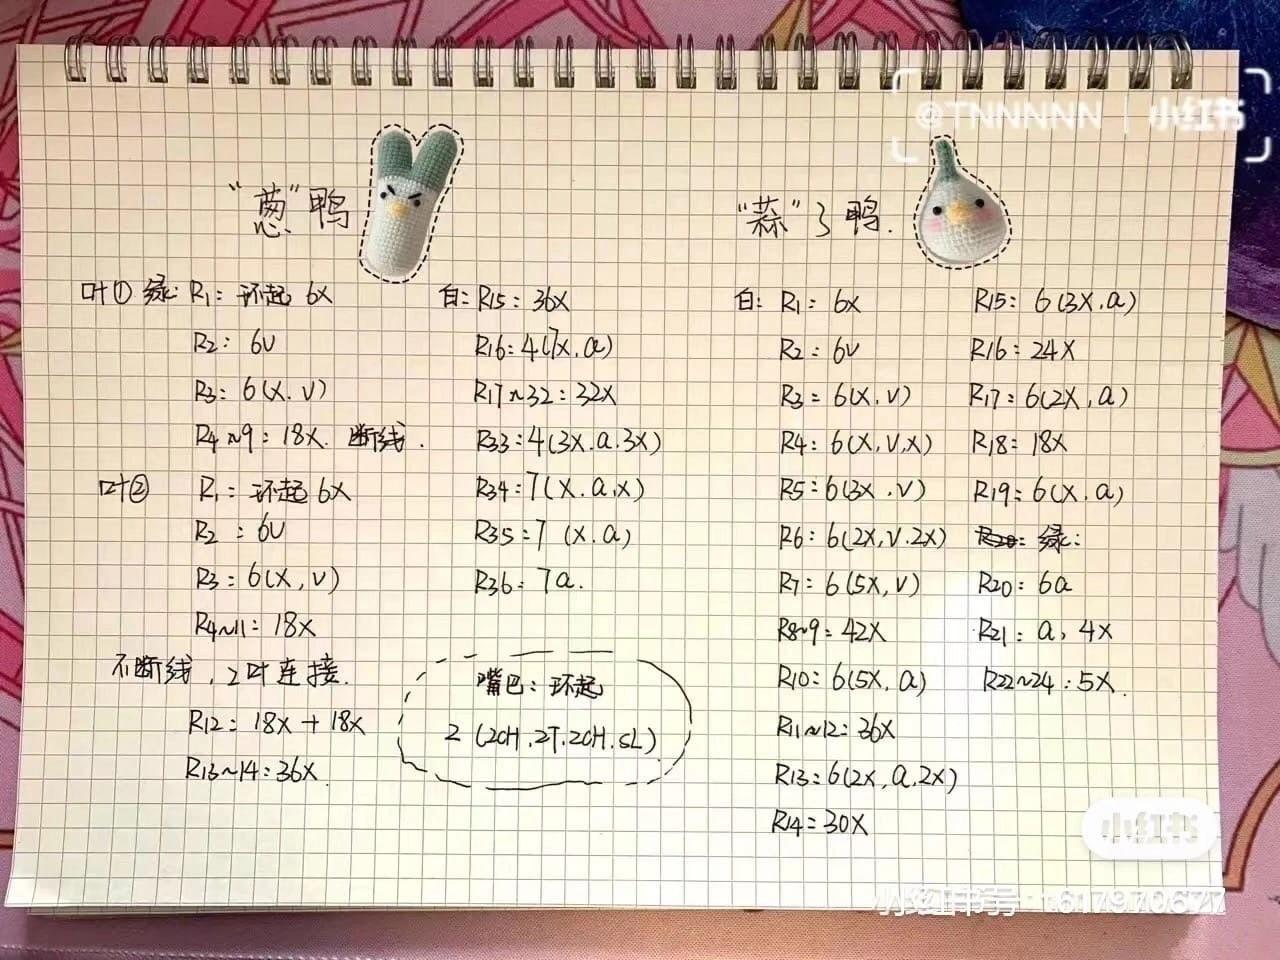 @TNNNNN | 小红书
"葱"鸭
叶① 绿: R1: 环起 6X
R2: 6V
R3: 6(X.V)
R4~9: 18X. 断线.
叶② R1: 环起 6X
R2: 6V
R3: 6(X,V)
R4~11: 18X
不断线,2叶连接.
R12: 18X+18X
R13~14: 36X.
白: R15: 36X
R16: 4(7X.A)
R17~32: 32X
R33: 4(3X.A.3X)
R34: 7(X.A.X)
R35: 7(X.A)
R36: 7A.
嘴巴: 环起
2(2CH.2T.2CH.SL)
"蒜"了鸭.
白: R1: 6X
R2: 6V
R3: 6(X,V)
R4: 6(X,V,X)
R5: 6(3X.V)
R6: 6(2X,V.2X)
R7: 6(5X,V)
R8~9: 42X
R10: 6(5X,A)
R11~12: 36X
R13: 6(2X,A.2X)
R14: 30X
R15: 6(3X.A)
R16: 24X
R17: 6(2X,A)
R18: 18X
R19: 6(X.A)
绿:
R20: 6A
R21: A,4X
R22~24: 5X.
小红书
小红书号:617970627